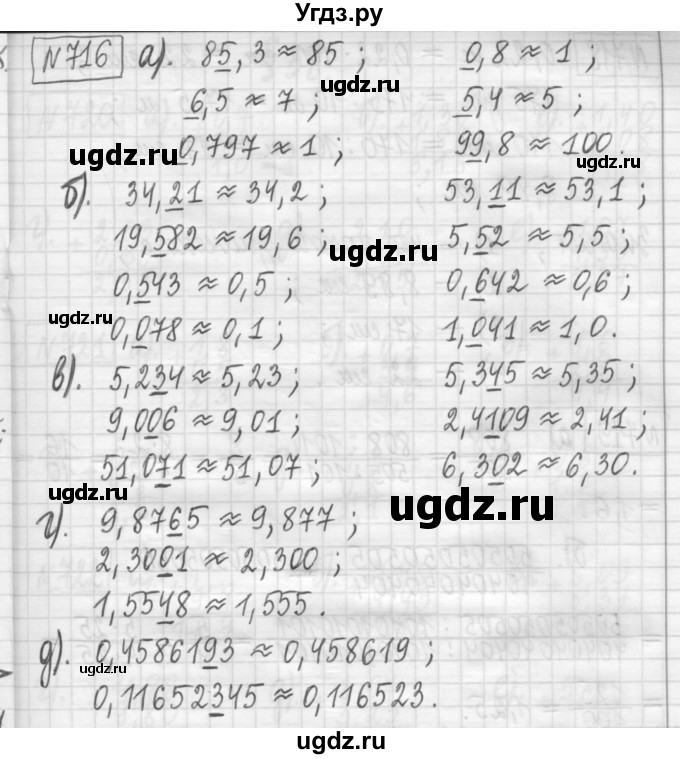 Угдз.ру
№716 а). 85,3 ≈ 85 ; 0,8 ≈ 1 ;
6,5 ≈ 7 ; 5,4 ≈ 5 ;
0,797 ≈ 1 ; 99,8 ≈ 100.
ugdz.ru
ugdz.ru
б). 34,21 ≈ 34,2 ; 53,11 ≈ 53,1 ;
19,582 ≈ 19,6 ; 5,52 ≈ 5,5 ;
ugdz.ru
0,543 ≈ 0,5 ; 0,642 ≈ 0,6 ;
ugdz.ru
0,078 ≈ 0,1 ; 1,041 ≈ 1,0.
в). 5,234 ≈ 5,23 ; 5,345 ≈ 5,35 ;
9,006 ≈ 9,01 ; 2,4109 ≈ 2,41 ;
51,071 ≈ 51,07 ; 6,302 ≈ 6,30.
ugdz.ru
ugdz.ru
г). 9,8765 ≈ 9,877 ;
2,3001 ≈ 2,300 ;
1,5548 ≈ 1,555.
д). 0,4586193 ≈ 0,458619 ;
ugdz.ru
0,11652345 ≈ 0,116523.
ugdz.ru